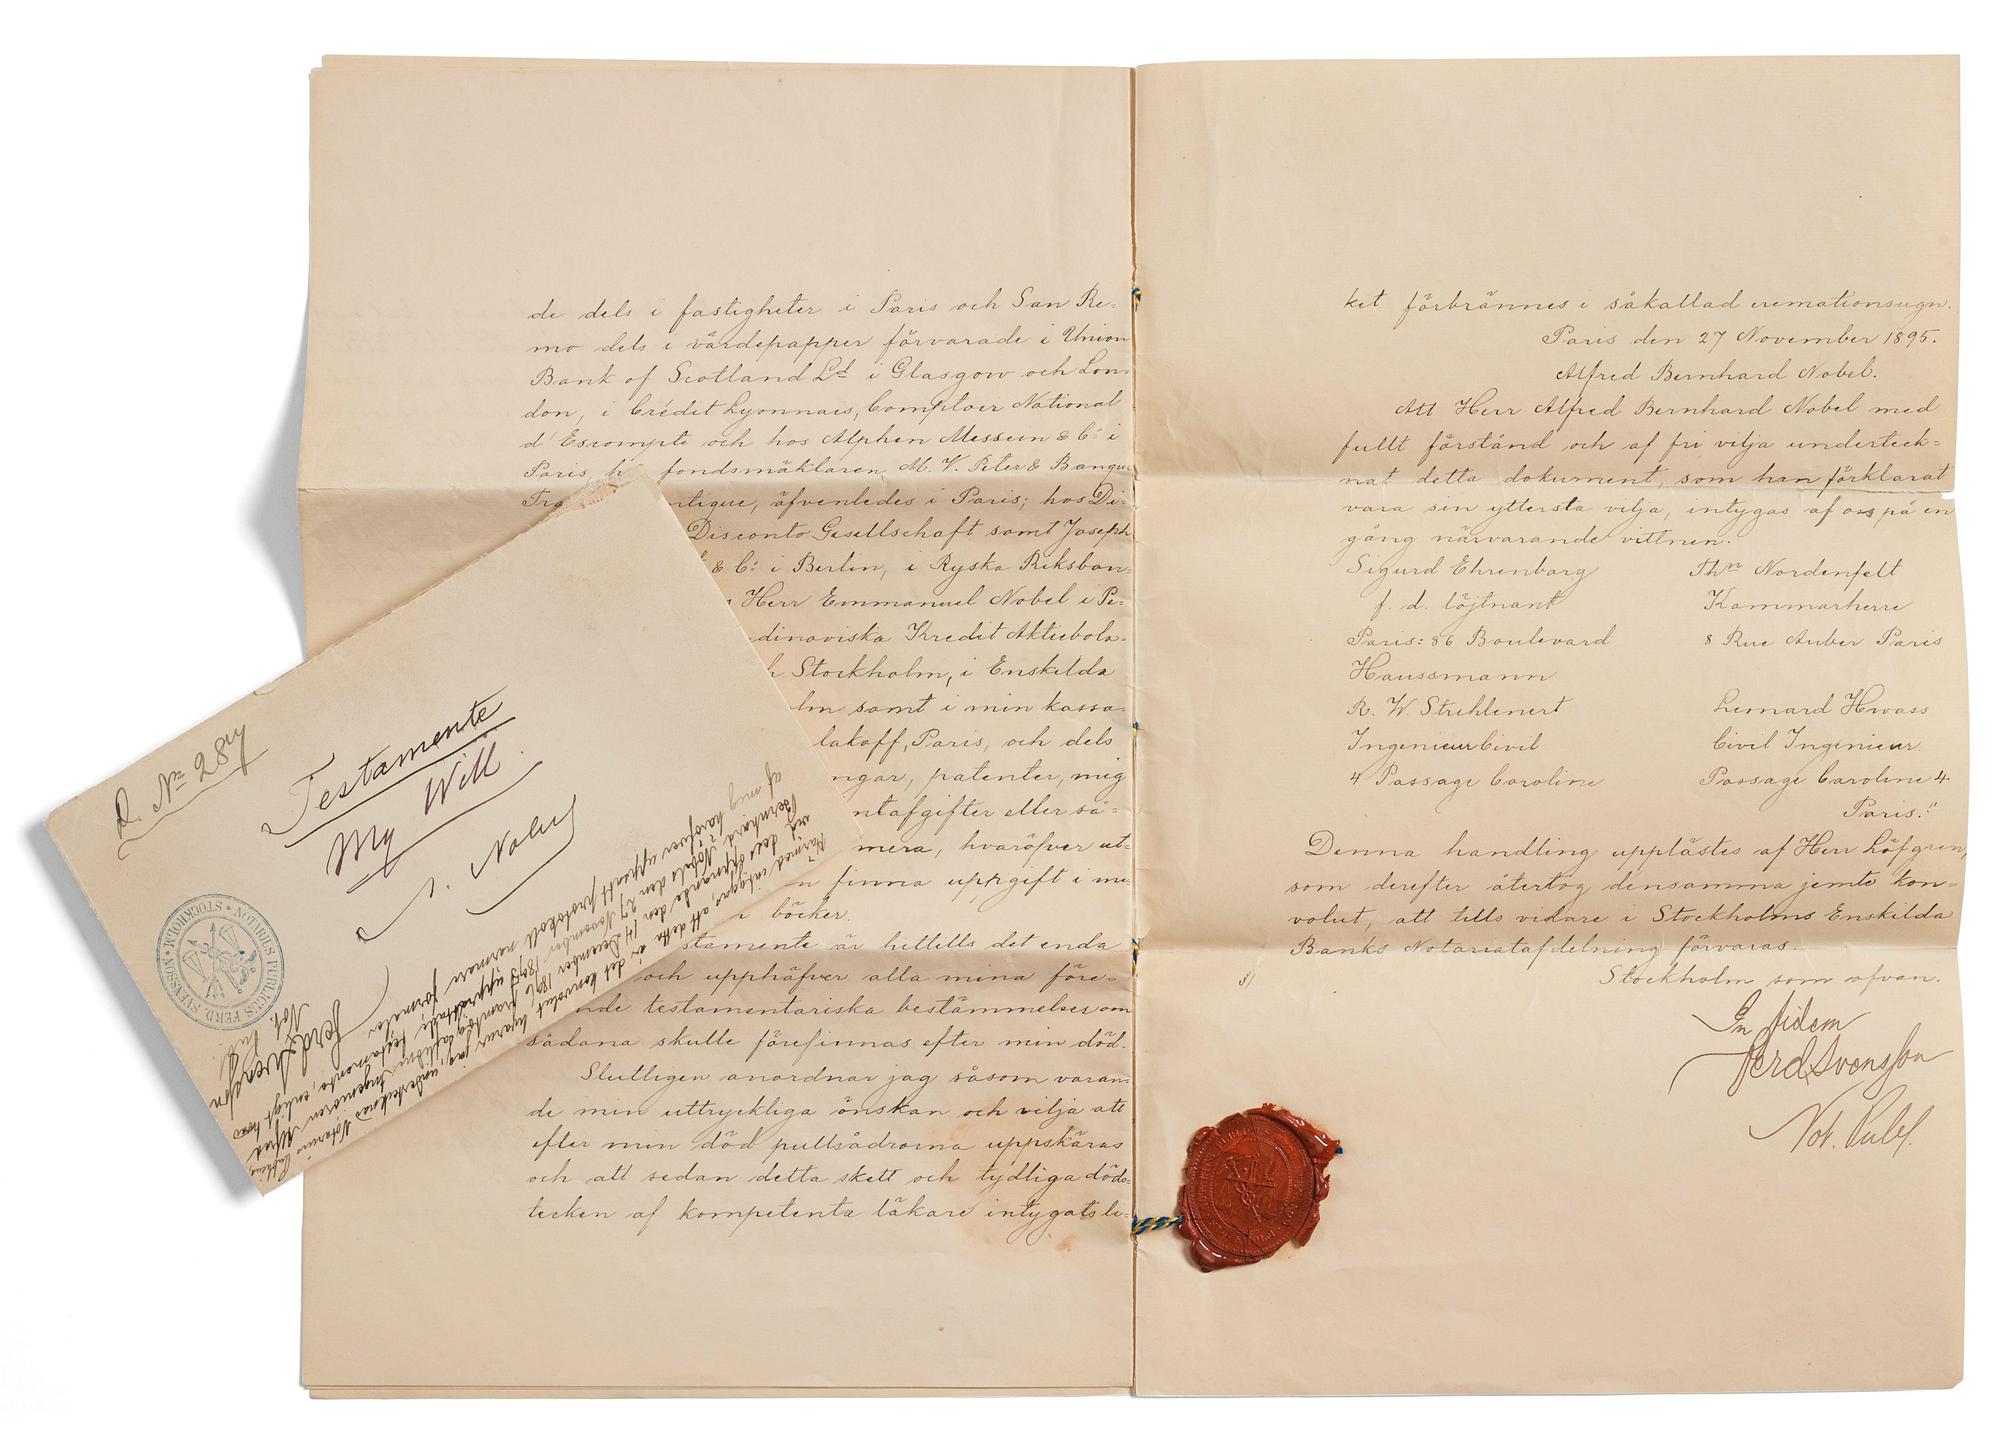 de dels i fastigheter i Paris och San Re=
mo dels i värdepapper förvarade i Union
Bank of Scotland Ld i Glasgow och Lon=
don, i Crédit Lyonnais, Comptoir National
d'Escompte och hos Alphen Messin & Co: i
Paris, h fondsmäklaren M. V. Peter & Banque
Tra ntique, äfvenledes i Paris; hos Di=
Disconto Gesellschaft samt Joseph
& Co: i Berlin, i Ryska Riksban=
Herr Emmanuel Nobel i Pe=
dinaviska Kredit Aktiebola=
h Stockholm, i Enskilda
lm samt i min kassa=
lakoff, Paris, och dels
ngar, patenter, mig
ntafgifter eller så=
mera, hvaröfver ut=
n finna uppgift i mi=
böcker.
stamente är hittills det enda
och upphäfver alla mina före=
nde testamentariska bestämmelser om
sådana skulle förefinnas efter min död.
Slutligen anordnar jag såsom varan=
de min uttryckliga önskan och vilja att
efter min död pulsådrorna uppskäras
och att sedan detta skett och tydliga döds=
tecken af kompetenta läkare intygats li=
ket förbrännes i såkallad cremationsugn.
Paris den 27 November 1895.
Alfred Bernhard Nobel.
Att Herr Alfred Bernhard Nobel med
fullt förstånd och af fri vilja underteck=
nat detta dokument, som han förklarat
vara sin yttersta vilja, intygas af oss på en
gång närvarande vittnen.
Sigurd Ehrenborg
f. d. löjtnant
Paris: 86 Boulevard
Haussmann
Thn Nordenfelt
Kammarherre
8 Rue Auber Paris
R. W. Strehlenert
Ingenieur Civil
4 Passage Caroline
Leonard Hwass
Civil Ingenieur.
Passage Caroline 4
Paris."
Denna handling upplästes af Herr Löfgren,
som derefter återtog densamma jemte kon=
volut, att tills vidare i Stockholms Enskilda
Banks Notariatafdelning förvaras.
Stockholm som ofvan.
In fidem
Ferd Svensson
Not. Publ.
Testamente
My Will.
A. Nobel
NOTARIUS PUBLICUS FERD. SVENSON • STOCKHOLM •
Härmed intygas, att detta är det konvolut hvarur jag, undertecknad Notarius Publicus,
vid dess öppnande den 14 December 1896 framtog aflidne Ingeniören Alfred
Bernhard Nobels den 27 November 1895 upprättade testamente, enligt hvad
af mig häröfver uppsatt protokoll närmare förmäler
Ferd Svenson
Not. Publ.